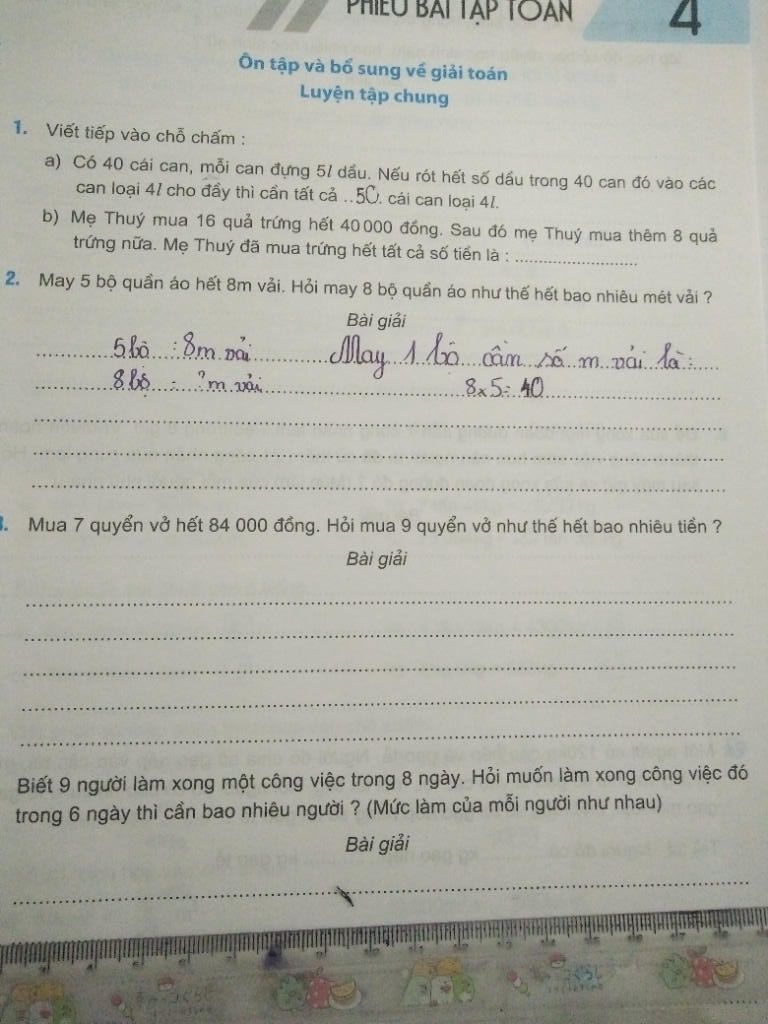 PHIẾU BÀI TẬP TOÁN 4
Ôn tập và bổ sung về giải toán
Luyện tập chung
1. Viết tiếp vào chỗ chấm :
a) Có 40 cái can, mỗi can đựng 5l dầu. Nếu rót hết số dầu trong 40 can đó vào các
can loại 4l cho đầy thì cần tất cả ..50. cái can loại 4l.
b) Mẹ Thuý mua 16 quả trứng hết 40 000 đồng. Sau đó mẹ Thuý mua thêm 8 quả
trứng nữa. Mẹ Thuý đã mua trứng hết tất cả số tiền là : ........................
2. May 5 bộ quần áo hết 8m vải. Hỏi may 8 bộ quần áo như thế hết bao nhiêu mét vải ?
Bài giải
5 bộ : 8m vải May 1 bộ cần số m vải là :
8 bộ : ?m vải 8 x 5 = 40
3. Mua 7 quyển vở hết 84 000 đồng. Hỏi mua 9 quyển vở như thế hết bao nhiêu tiền ?
Bài giải
Biết 9 người làm xong một công việc trong 8 ngày. Hỏi muốn làm xong công việc đó
trong 6 ngày thì cần bao nhiêu người ? (Mức làm của mỗi người như nhau)
Bài giải